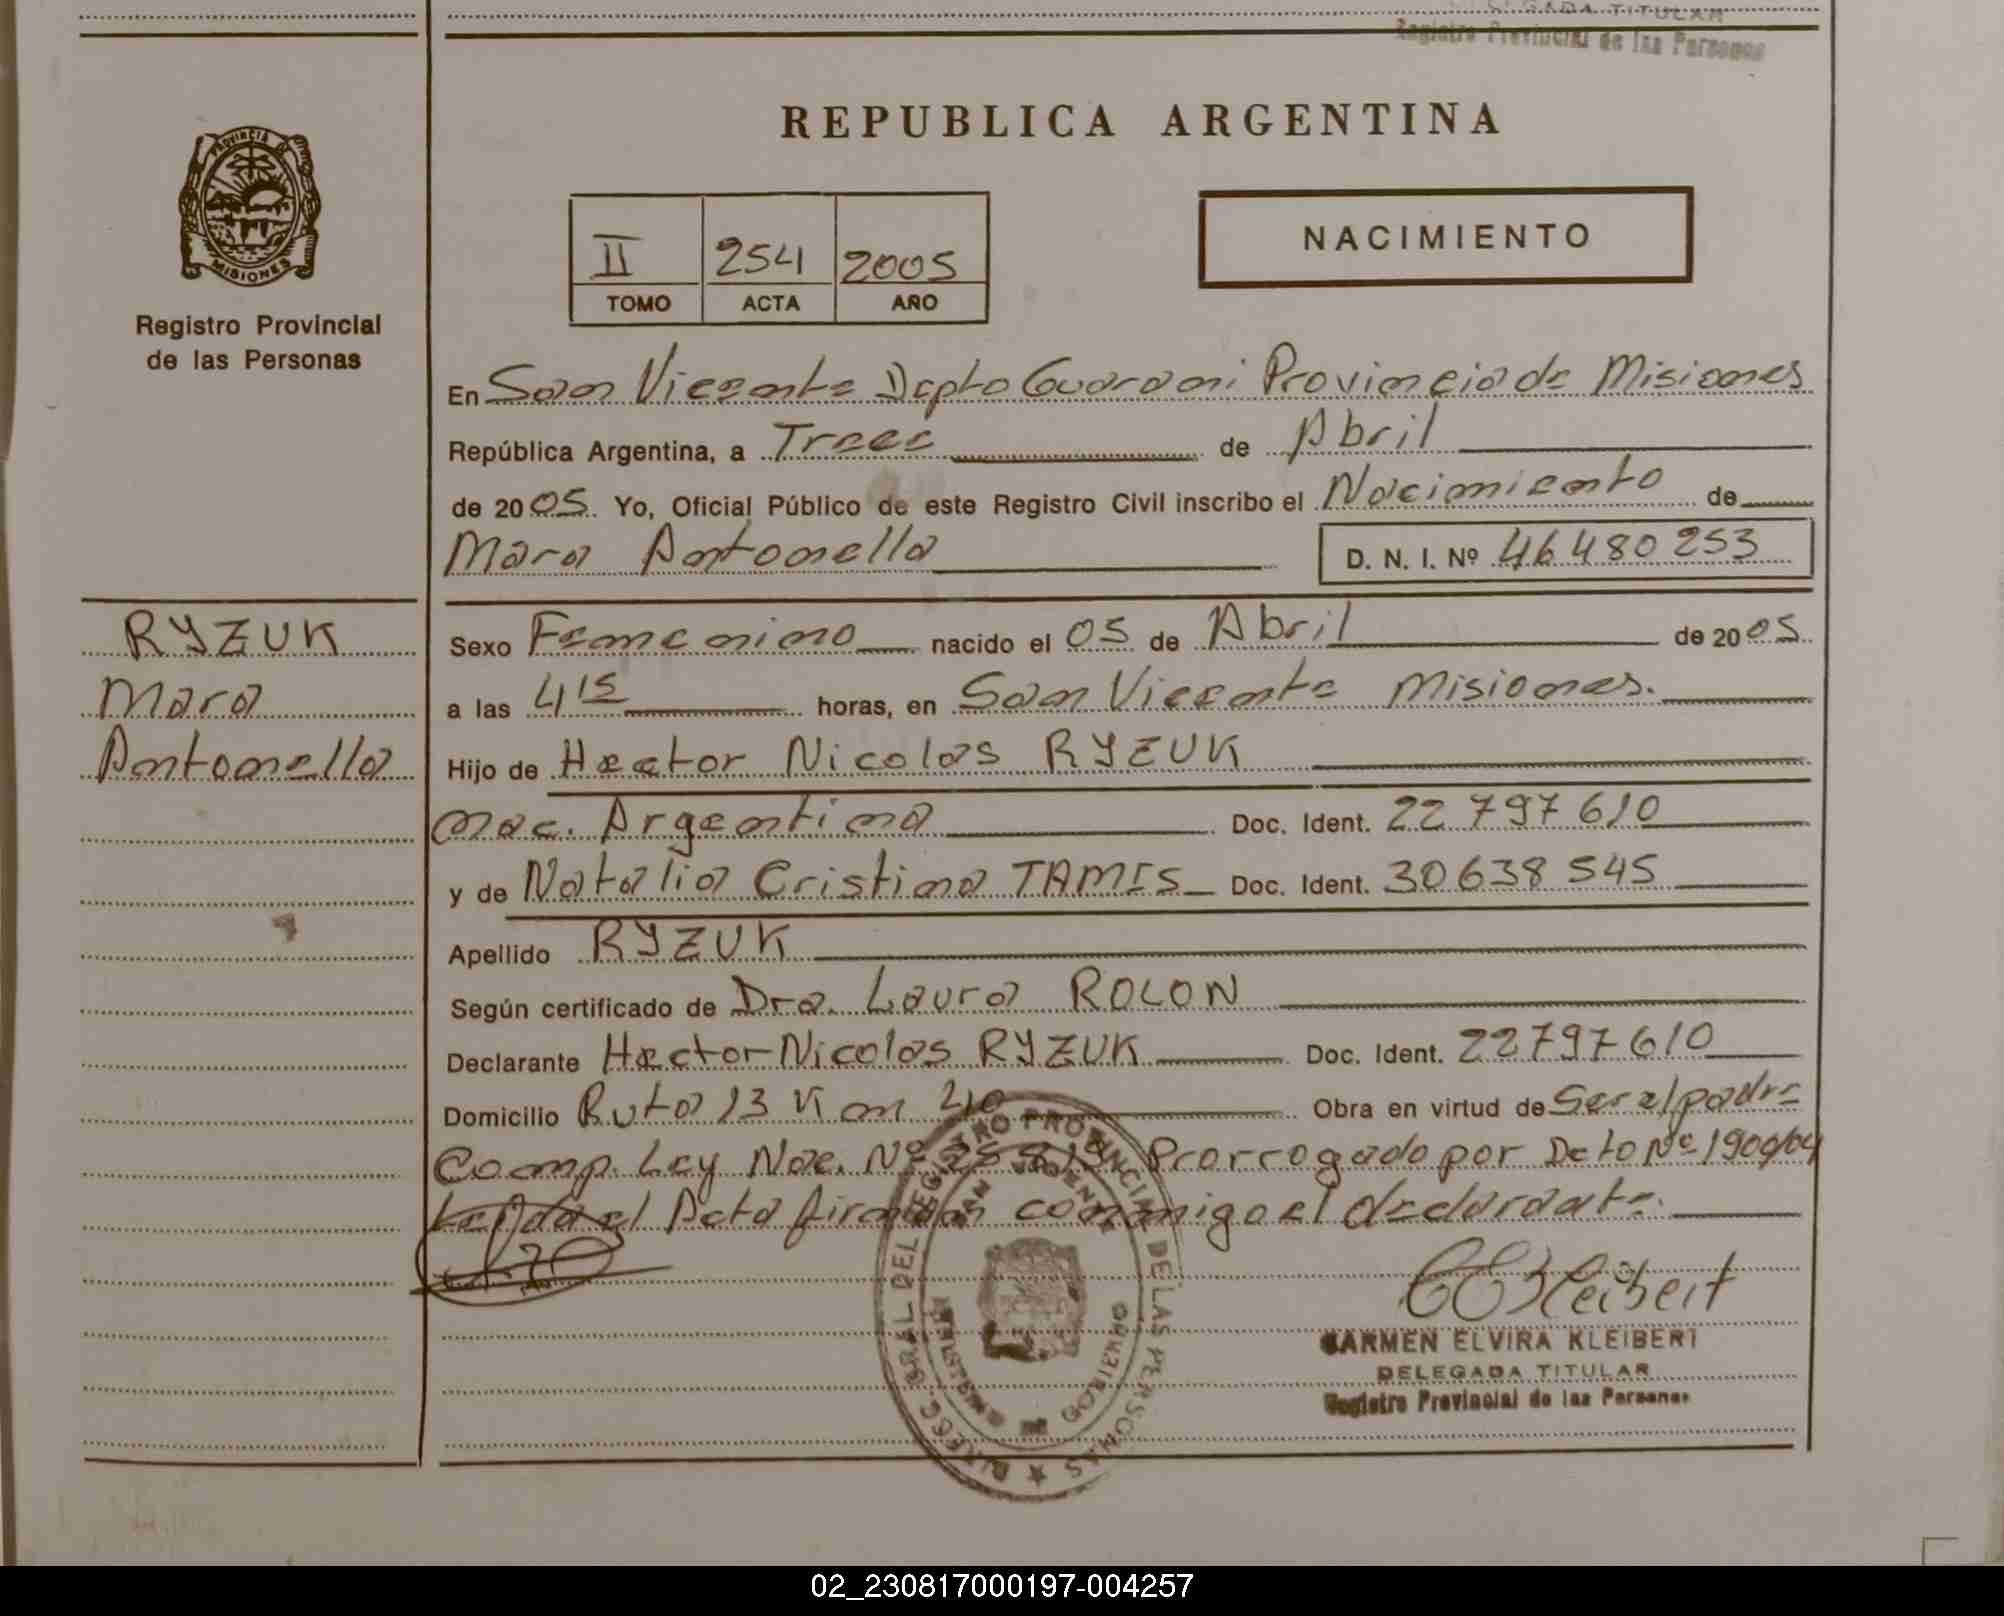 DELEGADA TITULAR
Registro Provincial de las Personas
REPUBLICA ARGENTINA
PROVINCIA DE
MISIONES
Registro Provincial
de las Personas
II 254 2005
TOMO ACTA AÑO
NACIMIENTO
En San Vicente Dcpto Guarani Provincia de Misiones
República Argentina, a Trece de Abril
de 2005. Yo, Oficial Público de este Registro Civil inscribo el Nacimiento de
Mara Antonella D. N. I. Nº 46 480 253
RYZUK
Mara
Antonella
Sexo Femenino nacido el 05 de Abril de 2005
a las 4 15 horas, en San Vicente Misiones.
Hijo de Hector Nicolas RYZUK
nac. Argentina Doc. Ident. 22 797 610
y de Natalia Cristina TAMIS Doc. Ident. 30 638 545
Apellido RYZUK
Según certificado de Dra. Laura ROLON
Declarante Hector Nicolas RYZUK Doc. Ident. 22 797 610
Domicilio Ruta 13 Km 210 Obra en virtud de Ser el padre
Comp. Ley Nac. Nº Prorrogado por Dcto Nº 1900/04
Leida el Acta firman conmigo el declarante.
DIREC. GRAL DEL REGISTRO PROVINCIAL DE LAS PERSONAS
SAN VICENTE
MINISTERIO DE GOBIERNO
CEKleibert
CARMEN ELVIRA KLEIBERT
DELEGADA TITULAR
Registro Provincial de las Personas
02_230817000197-004257